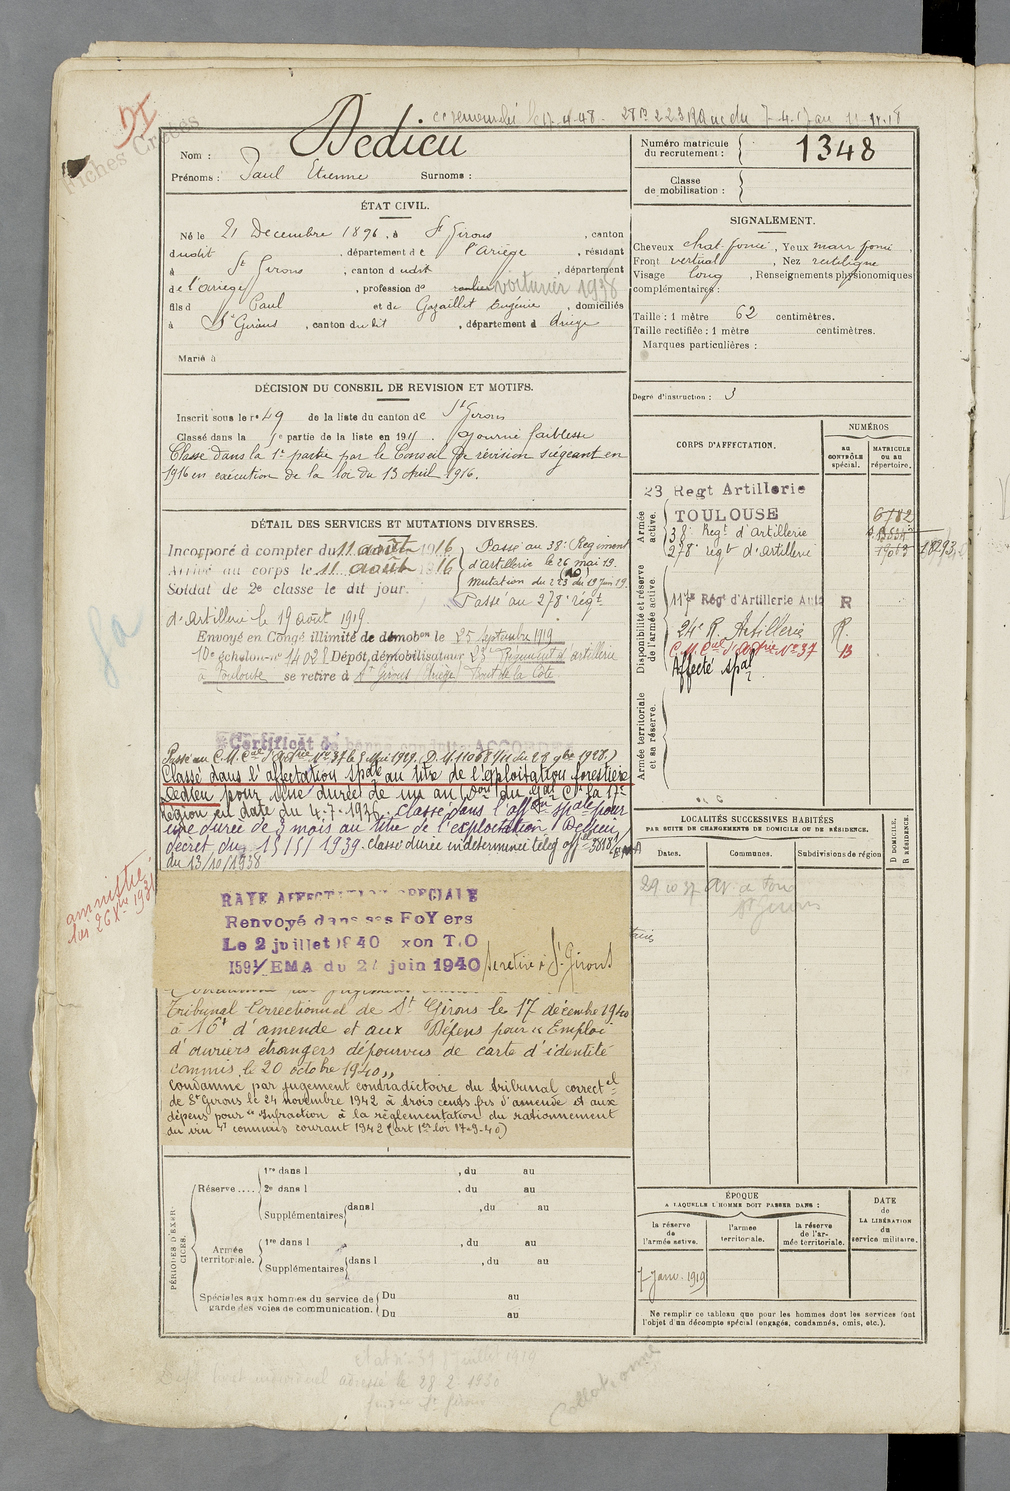 DI
Fiches Créées
28 m 223 19 au 7-4-17 au 11-11-18
Nom : Dedieu
Prénoms : Paul Etienne Surnoms :
Numéro matricule
du recrutement : 1348
Classe
de mobilisation :
ÉTAT CIVIL.
Né le 21 Decembre 1896, à St Girons, canton
dudit, département de l'Ariège, résidant
à St Girons, canton dudit, département
de l'Ariège, profession de roulier voiturier 1938
fils d Paul et de Gazaillet Eugénie, domiciliés
à St Girons, canton dudit, département d Ariège
Marié à
SIGNALEMENT.
Cheveux chat. foncé, Yeux marr foncé
Front vertical, Nez rectiligne
Visage long, Renseignements physionomiques
complémentaires :
Taille : 1 mètre 62 centimètres.
Taille rectifiée : 1 mètre centimètres.
Marques particulières :
Degré d'instruction : 3
DÉCISION DU CONSEIL DE REVISION ET MOTIFS.
Inscrit sous le n° 49 de la liste du canton de St Girons
Classé dans la 5e partie de la liste en 191. Ajourné faiblesse
Classé dans la 1e partie par le Conseil de révision siégeant en
1916 en exécution de la loi du 13 Avril 1916.
DÉTAIL DES SERVICES ET MUTATIONS DIVERSES.
Incorporé à compter du 11 août 1916
Arrivé au corps le 11 août 1916
Soldat de 2e classe le dit jour.
Passé au 38e Régiment
d'artillerie le 26 mai 19.
mutation du 223 du 19 Juin 19.
Passé au 278e régt
d'Artillerie le 19 août 1919
Envoyé en Congé illimité de démobon le 25 septembre 1919
10e échelon n° 14028 Dépôt démobilisateur 23e Régiment d'artillerie
à Toulouse se retire à St Girons Ariège Bout de la Côte.
Certificat de bonne conduite ACCORDÉ
Passé au C.M. Cal d'Artrie No 37 le 3 Mai 1929. (D.M. 11068 1/11 du 28 9bre 1928)
Classé dans l'affectation spale au titre de l'exploitation forestière
Dedieu pour une durée de un an, Don du Gal Ct la 17e
Région en date du 4.7.1936. Classé dans l'affon spale pour
une durée de 3 mois au titre de l'exploitation Dedieu
décret du 15/5/1939. Classé durée indéterminée téleg offel 3818/EMA
du 13/10/1938
amnistié
loi 26 Xbre 1931
RAYE AFFECTATION SPECIALE
Renvoyé dans ses FoYers
Le 2 juillet 1940 xon T.O
1591/EMA du 27 juin 1940 se retire à St Girons
Tribunal Correctionnel de St Girons le 17 décembre 1940
à 16f d'amende et aux Dépens pour « Emploi
d'ouvriers étrangers dépourvus de carte d'identité
commis le 20 octobre 1940 »
Condamné par jugement contradictoire du tribunal correctel
de St Girons le 24 novembre 1942 à trois cents frs d'amende et aux
dépens pour « Infraction à la règlementation du rationnement
du vin » commis courant 1942 (art 1er loi 17-9-40)
CORPS D'AFFECTATION.
NUMÉROS
au
CONTRÔLE
spécial.
MATRICULE
ou au
répertoire.
Armée
active.
23 Regt Artillerie
TOULOUSE 6782
38e Regt d'artillerie
278e régt d'artillerie
Disponibilité et réserve
de l'armée active.
117e Régt d'Artillerie Auto R
24e R. Artillerie R.
C.M. Cal d'Artrie No 37 B
Affecté spal
Armée territoriale
et sa réserve.
LOCALITÉS SUCCESSIVES HABITÉES
PAR SUITE DE CHANGEMENTS DE DOMICILE OU DE RÉSIDENCE.
Dates.
Communes.
Subdivisions de région
D DOMICILE.
R RÉSIDENCE.
29 10 37 Av. de Foix
St Girons
ÉPOQUE
A LAQUELLE L'HOMME DOIT PASSER DANS :
DATE
de
LA LIBÉRATION
du
service militaire.
la réserve
de
l'armée active.
l'armée
territoriale.
la réserve
de l'ar-
mée territoriale.
7 janv. 1919
Ne remplir ce tableau que pour les hommes dont les services font
l'objet d'un décompte spécial (engagés, condamnés, omis, etc.).
PÉRIODES D'EXER-
CICES.
Réserve....
1re dans l , du au
2e dans l , du au
Supplémentaires dans l , du au
Armée
territoriale.
1re dans l , du au
Supplémentaires dans l , du au
Spéciales aux hommes du service de
garde des voies de communication.
Du au
Du au
Collationné